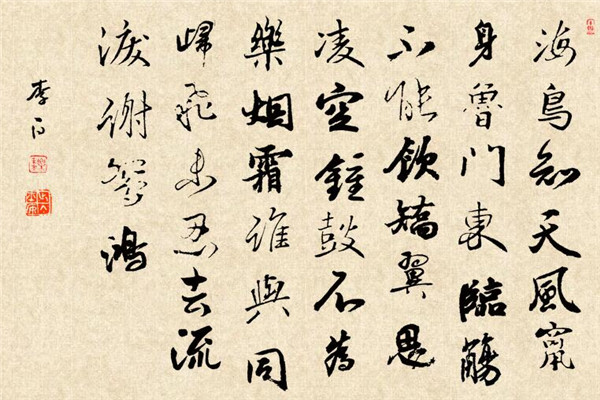 海鳥知天風竄
身魯門東臨觴
不能飲矯翼思
凌空鍾鼓不為
樂烟霜誰與同
歸飛未忍去流
淚謝鴛鴻
李白